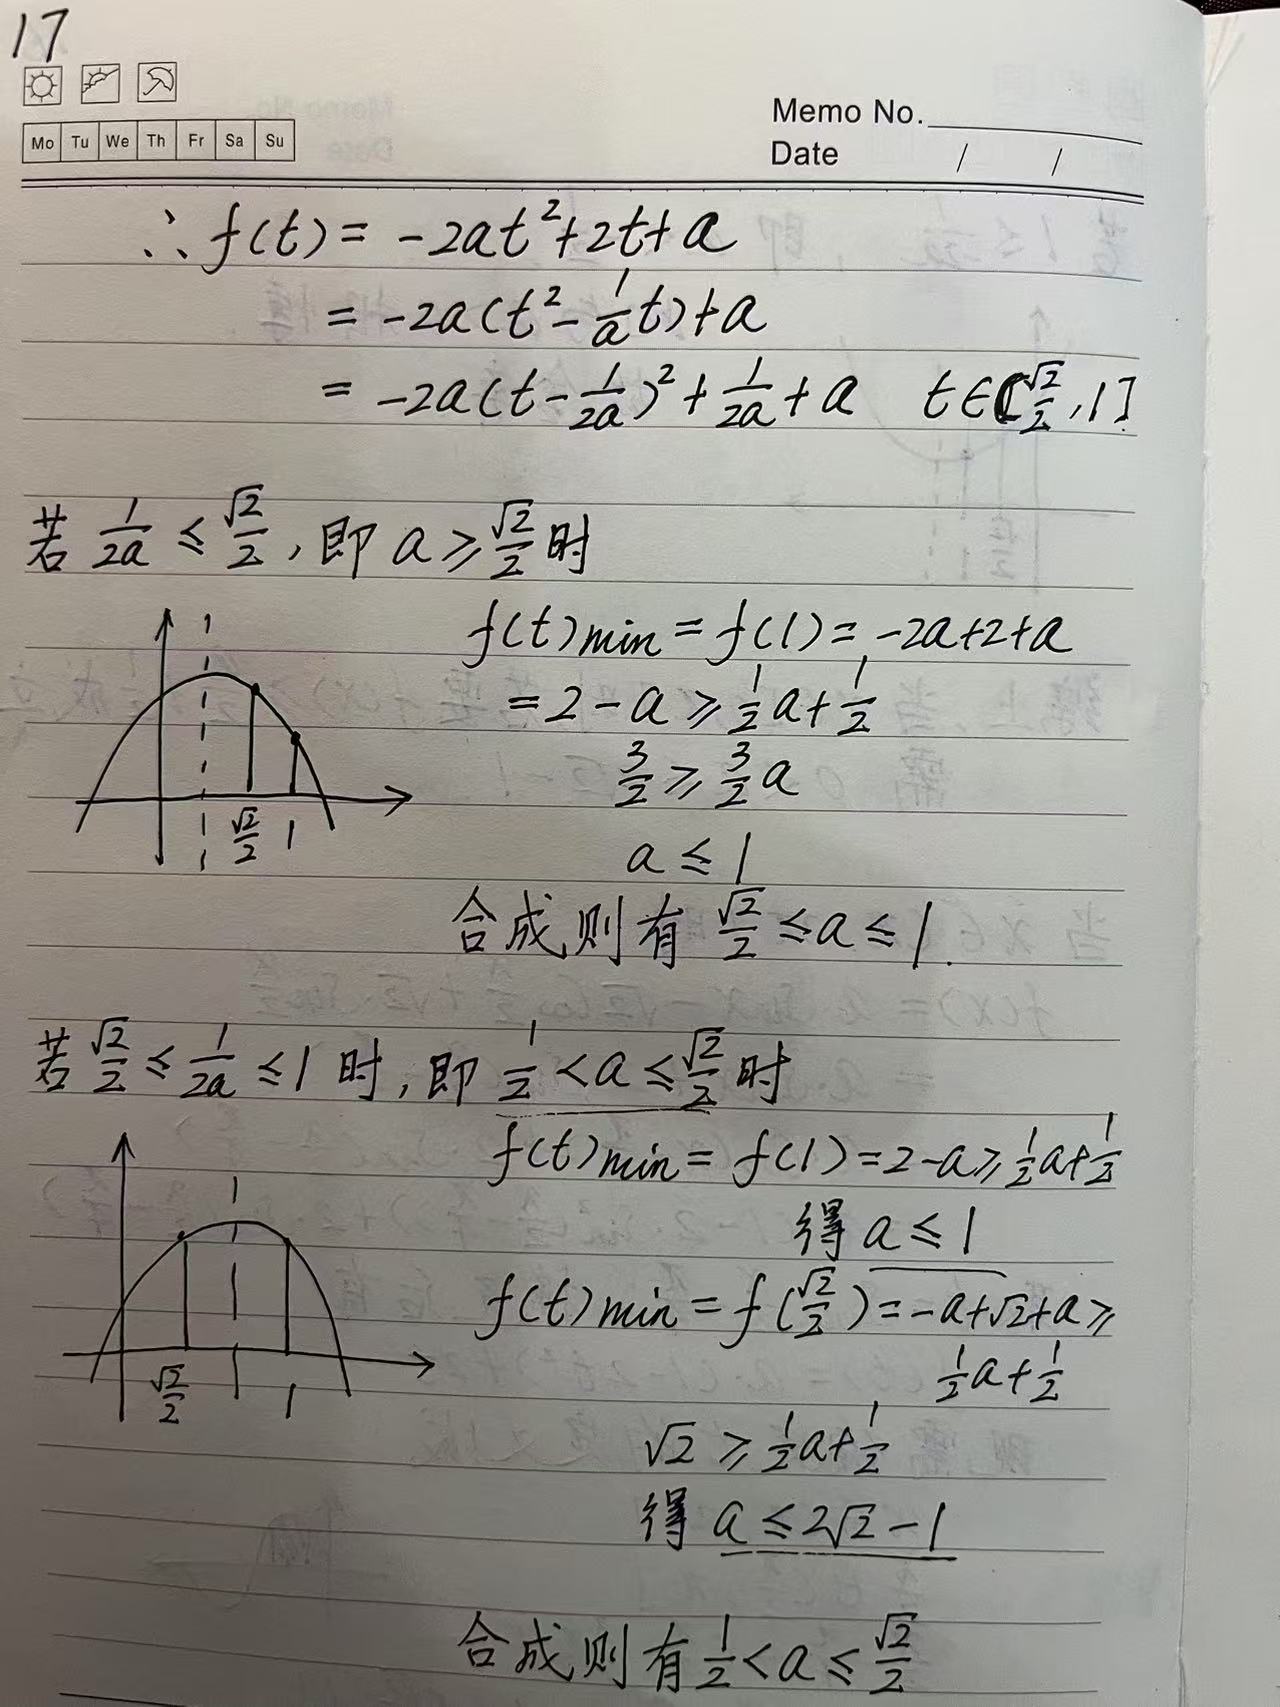 17
Mo Tu We Th Fr Sa Su
Memo No.
Date / /
∴ f(t) = -2at²+2t+a
= -2a(t²-\frac{1}{a}t)+a
= -2a(t-\frac{1}{2a})²+\frac{1}{2a}+a t∈[\frac{√2}{2},1]
若 \frac{1}{2a} ≤ \frac{√2}{2}, 即 a ≥ \frac{√2}{2} 时
f(t)min = f(1) = -2a+2+a
= 2-a ≥ \frac{1}{2}a+\frac{1}{2}
\frac{3}{2} ≥ \frac{3}{2}a
\frac{√2}{2} 1
a ≤ 1
合成则有 \frac{√2}{2} ≤ a ≤ 1.
若 \frac{√2}{2} ≤ \frac{1}{2a} ≤ 1 时, 即 \frac{1}{2} < a ≤ \frac{√2}{2} 时
f(t)min = f(1) = 2-a ≥ \frac{1}{2}a+\frac{1}{2}
得 a ≤ 1
f(t)min = f(\frac{√2}{2}) = -a+√2+a ≥
\frac{1}{2}a+\frac{1}{2}
\frac{√2}{2} 1
√2 ≥ \frac{1}{2}a+\frac{1}{2}
得 a ≤ 2√2-1
合成则有 \frac{1}{2} < a ≤ \frac{√2}{2}